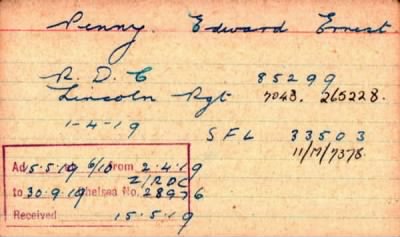 Penny. Edward Ernest
R. D. C 85299
Lincoln Rgt 7048. 265228.
1-4-19 SFL 33503
11/M/7378.
Ad 15.5.19 6/10 from 2.4.19
2/RDC
to 30.9.19 Chelsea No. 28976
Received 15.5.19